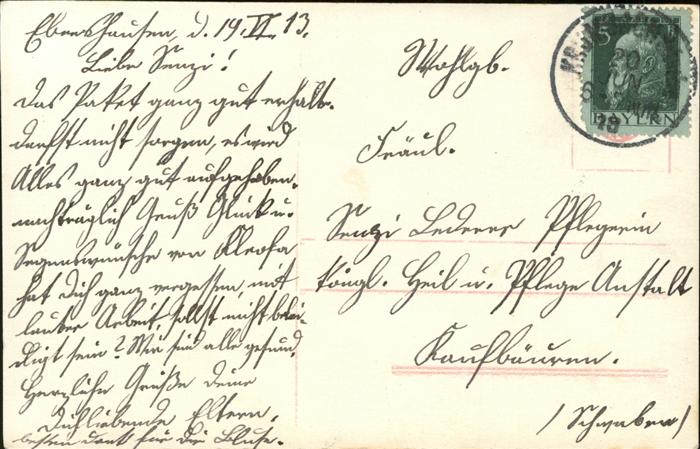 Ebershausen, d. 19.VI.13.
Liebe Senzi!
Das Paket ganz gut erhalt.
darfst nicht sorgen, es wird
Alles ganz gut aufgehoben.
nachträglich Gruß Glück u.
Segenswünsche von Kleofa
hat dich ganz vergessen, mit
lauter Arbeit, sollst nicht belei-
digt sein? Wir sind alle gesund,
Herzliche Grüße deine
Dichliebende Eltern,
besten dank für die Bluse.
Wohlgb.
Fräul.
Senzi Lederer Pflegerin
königl. Heil u. Pflege Anstalt
Kaufbäuren.
/Schwaben/
5
BAYERN